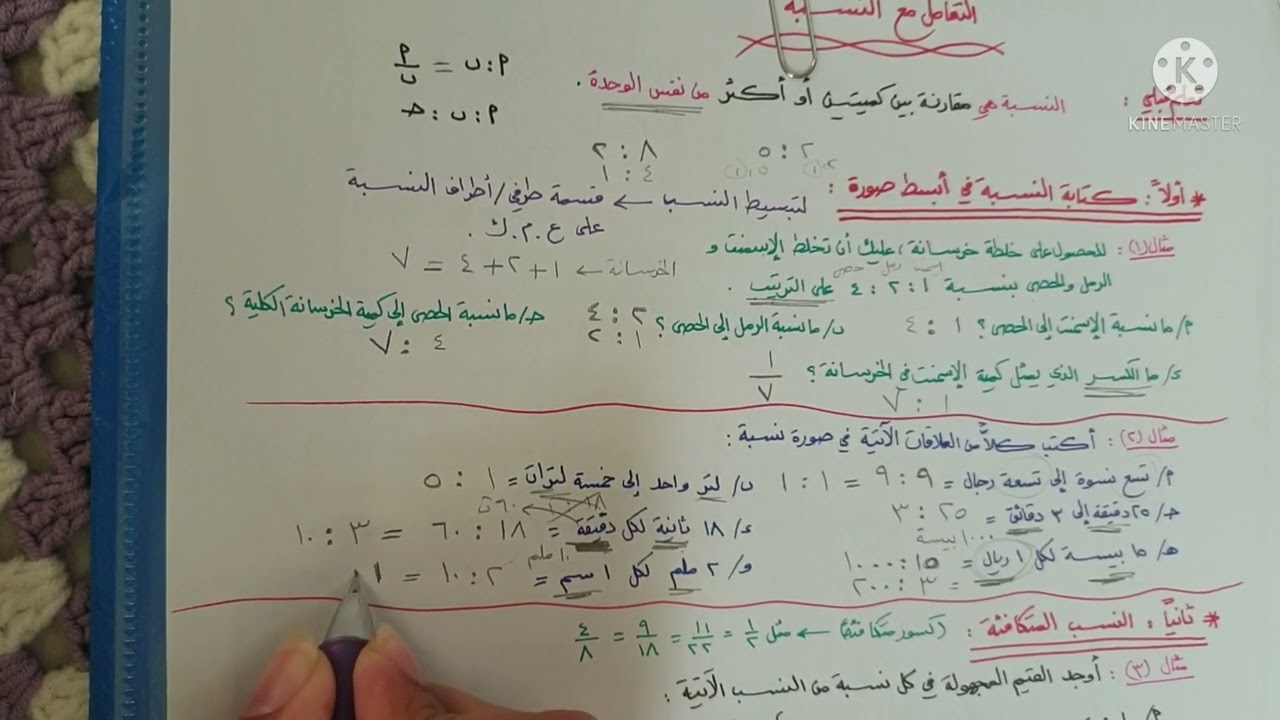 التعامل مع النسبة
KINEMASTER
النسبة هي مقارنة بين كميتين أو أكثر من نفس الوحدة .
م : ن = م/ن
م : ن : ح
٢ : ٥
٨ : ٢
٤ : ١
* أولاً : كتابة النسبة في أبسط صورة :
لتبسيط النسب ← قسمة طرفي/أطراف النسبة
على ع . م . ك .
مثال (١) : للحصول على خلطة خرسانة ، عليك أن تخلط الإسمنت و
الخرسانة ← ١ + ٢ + ٤ = ٧
اسمنت رمل حصى
الرمل والحصى بنسبة ١ : ٢ : ٤ على الترتيب .
م/ ما نسبة الإسمنت إلى الحصى ؟ ١ : ٤
ن/ ما نسبة الرمل إلى الحصى ؟ ٢ : ٤
١ : ٢
ح/ ما نسبة الحصى إلى كمية الخرسانة الكلية ؟
٤ : ٧
ء/ ما الكسر الذي يمثل كمية الإسمنت في الخرسانة ؟ ١/٧
١ : ٧
مثال (٢) : أكتب كلاً من العلاقات الآتية في صورة نسبة :
م/ تسع نسوة إلى تسعة رجال = ٩ : ٩ = ١ : ١
ن/ لتر واحد إلى خمسة لترات = ١ : ٥
ح/ ٢٥ دقيقة إلى ٣ دقائق = ٢٥ : ٣
ء/ ١٨ ثانية لكل دقيقة = ١٨ : ٦٠ = ٣ : ١٠
١٠٠٠ بيسة
هـ/ ١٥ بيسة لكل ١ ريال = ١٥ : ١٠٠٠
= ٣ : ٢٠٠
١٠ ملم
و/ ٢ ملم لكل ١ سم = ٢ : ١٠ = ١
* ثانياً : النسب المتكافئة : (كسور متكافئة) ← مثل ١/٢ = ١١/٢٢ = ٩/١٨ = ٤/٨
مثال (٣) : أوجد القيم المجهولة في كل نسبة من النسب الآتية :